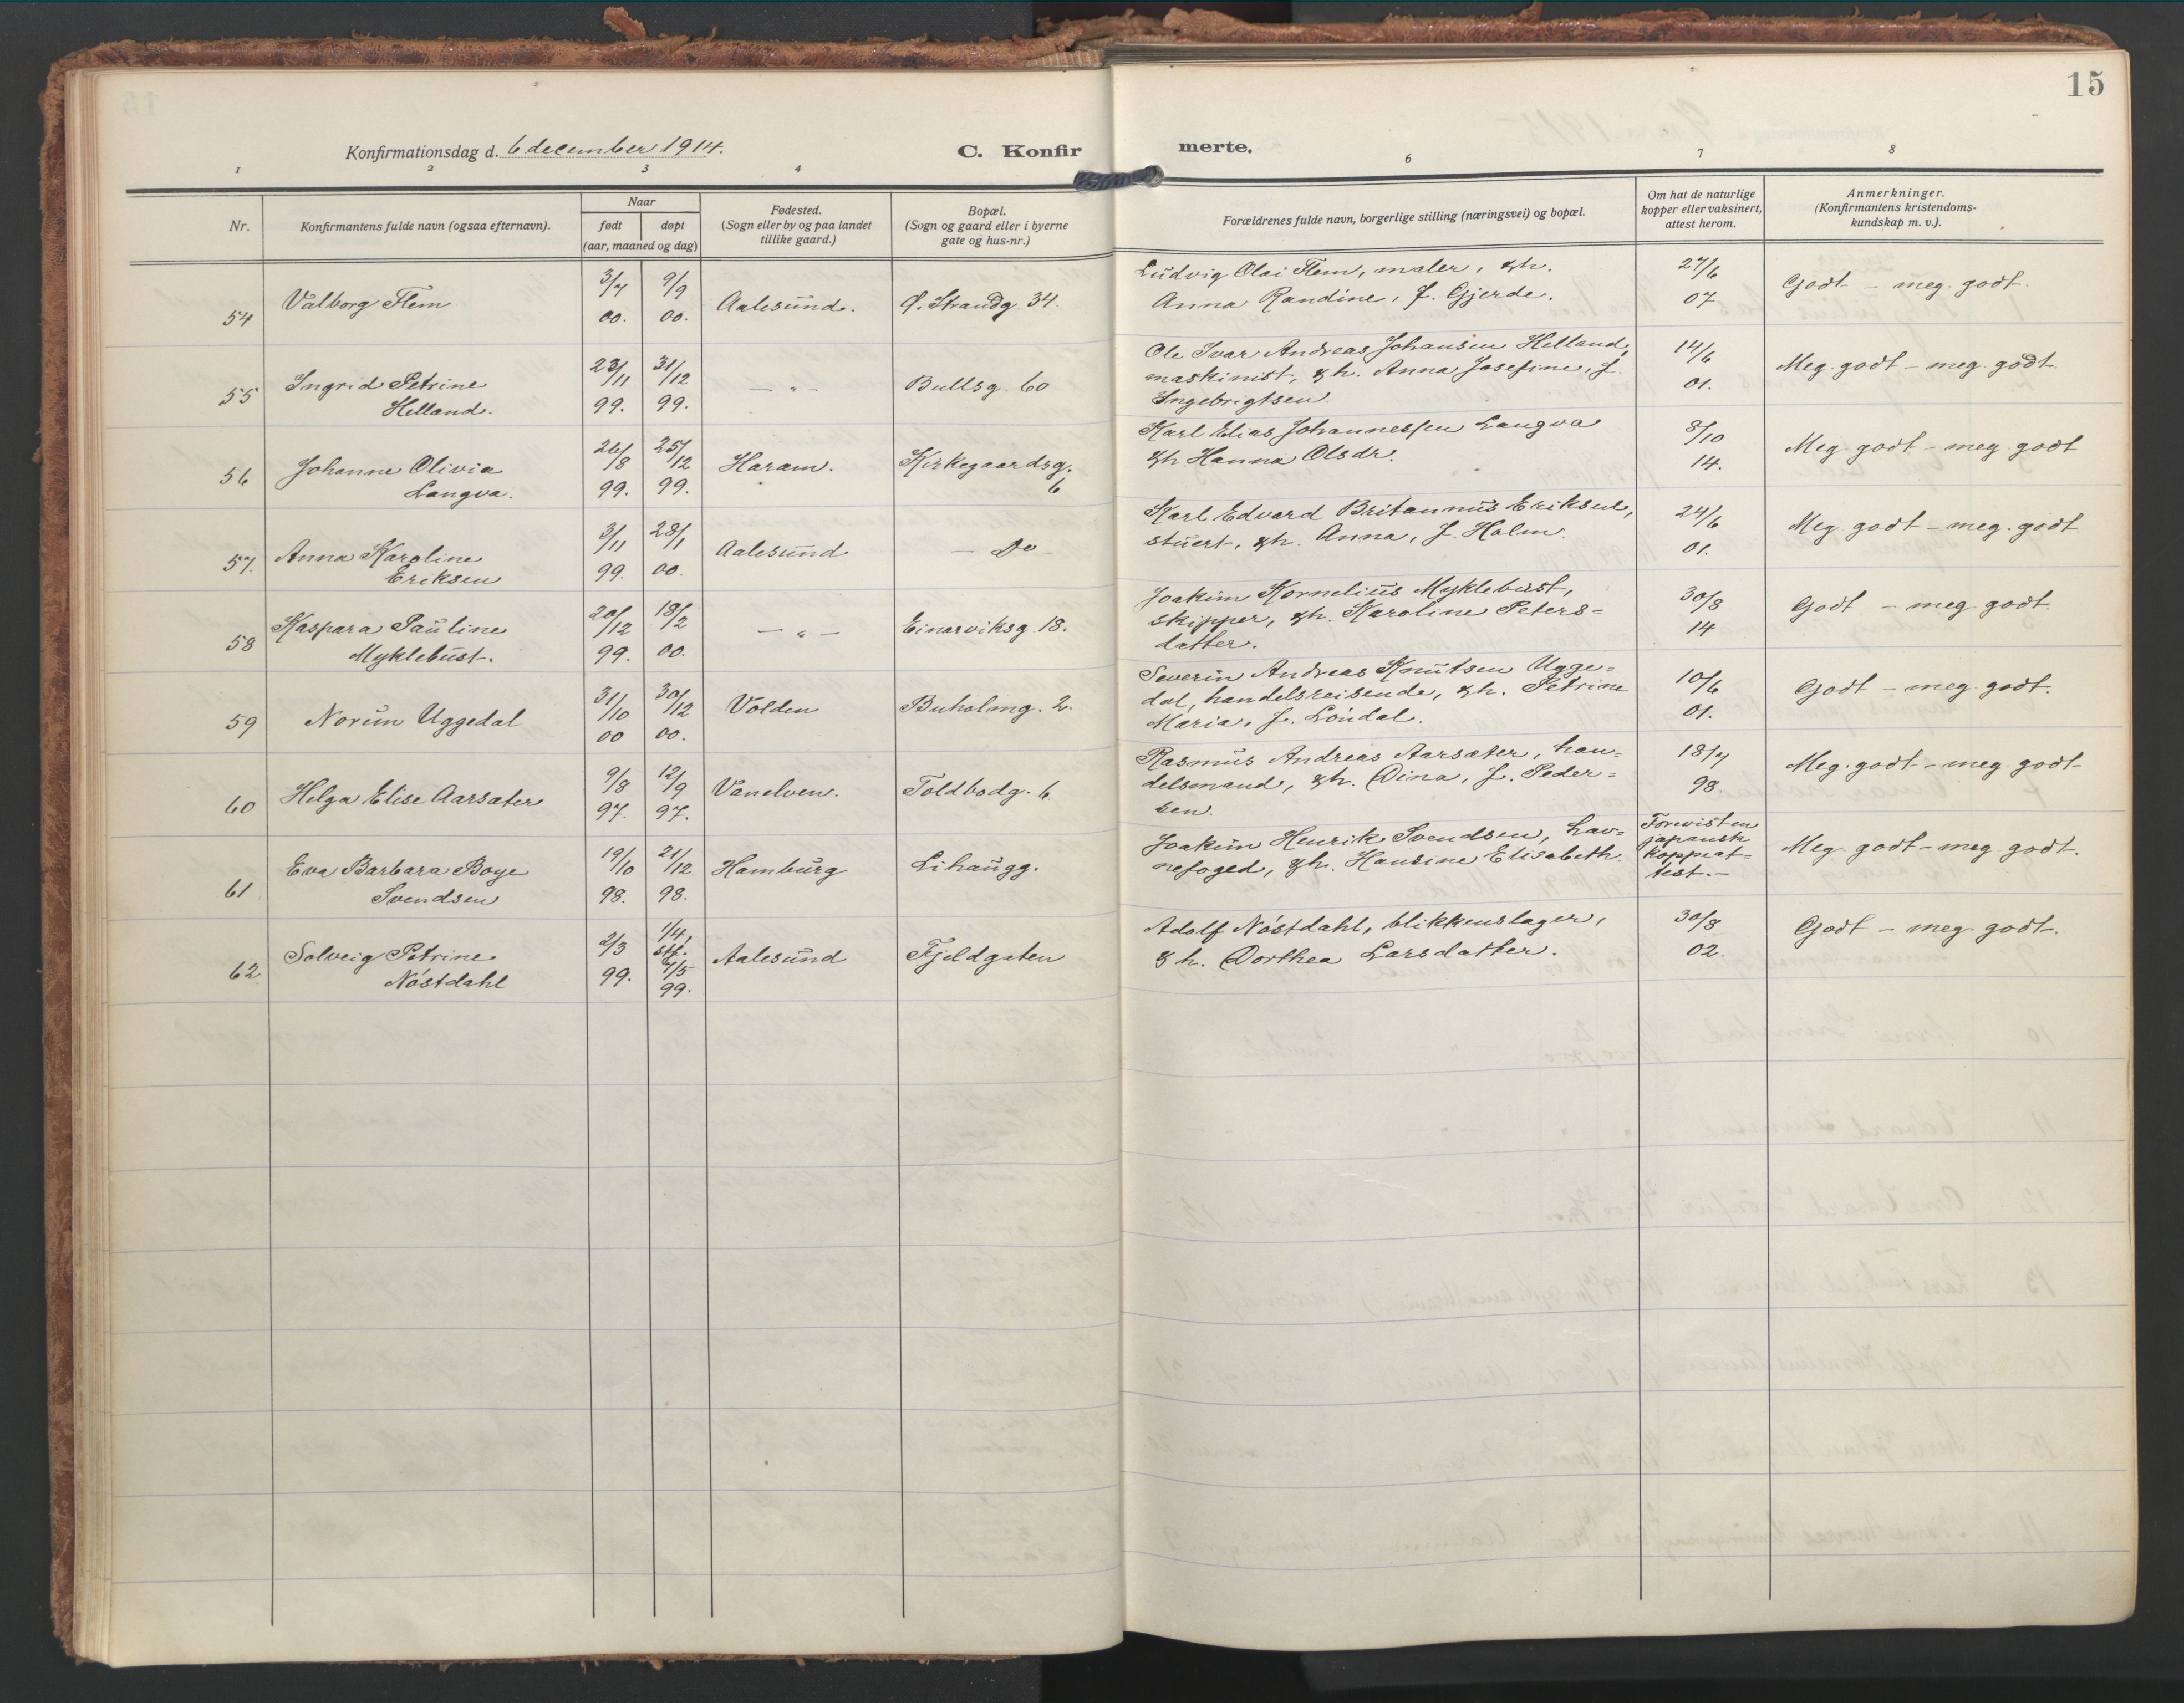 15
Konfirmationsdag d. 6 december 1914.
C. Konfirmerte.
1 2 3 4 6 7 8
Nr.
Konfirmantens fulde navn (ogsaa efternavn).
Naar
født døpt
(aar, maaned og dag)
Fødested.
(Sogn eller by og paa landet
tillike gaard.)
Bopæl.
(Sogn og gaard eller i byerne
gate og hus-nr.)
Forældrenes fulde navn, borgerlige stilling (næringsvei) og bopæl.
Om hat de naturlige
kopper eller vaksinert,
attest herom.
Anmerkninger.
(Konfirmantens kristendoms-
kundskap m. v.).
54
Valborg Flem
3/7
00.
9/9
00.
Aalesund.
Ø. Strandg. 34.
Ludvig Olai Flem, maler, & h.
Anna Randine, f. Gjerde.
27/6
07
Godt – meg. godt.
55
Ingrid Petrine
Helland.
23/11
99.
31/12
99.
— " —
Bullsg. 60
Ole Ivar Andreas Johansen Helland,
maskinist, & h. Anna Josefine, f.
Ingebrigtsen.
14/6
01.
Meg. godt – meg. godt.
56
Johanne Olivia
Langva.
26/8
99.
25/12
99.
Haram.
Kirkegaardsg.
6
Karl Elias Johannessen Langva
& h Hanna Olsdr.
8/10
14.
Meg. godt – meg. godt
57.
Anna Karoline
Eriksen
3/11
99.
28/1
00.
Aalesund
— Do —
Karl Edvard Britannus Eriksen,
stuert, & h. Anna, f. Holm.
24/6
01.
Meg. godt – meg. godt
58
Kaspara Pauline
Myklebust.
20/12
99.
18/2
00.
— " —
Einarviksg. 18.
Joakim Kornelius Myklebust,
skipper, & h. Karoline Peters-
datter.
30/8
14
Godt – meg. godt.
59
Norun Uggedal
31/10
00
30/12
00.
Volden
Buholmg. 2.
Severin Andreas Knutsen Ugge-
dal, handelsreisende, & h. Petrine
Maria, f. Lóndal.
10/6
01.
Godt – meg. godt.
60
Helga Elise Aarsæter
9/8
97.
12/9
97.
Vanelven.
Toldbodg. 6.
Rasmus Andreas Aarsæter, han-
delsmand, & h. Dina, f. Peder-
sen.
18/7
98.
Meg. godt – meg. godt
61
Eva Barbara Boye
Svendsen
19/10
98.
21/12
98.
Hamburg
Lihaugg.
Joakim Henrik Svendsen, hav-
nefoged, & h. Hansine Elisabeth
Forevist en
japansk
koppeat-
test. —
Meg. godt – meg. godt.
62.
Solveig Petrine
Nóstdahl
2/3
99.
1/4,
stf.
4/5
99.
Aalesund
Fjeldgaten
Adolf Nóstdahl, blikkenslager,
& h. Dorthea Larsdatter.
30/8
02.
Godt – meg. godt.